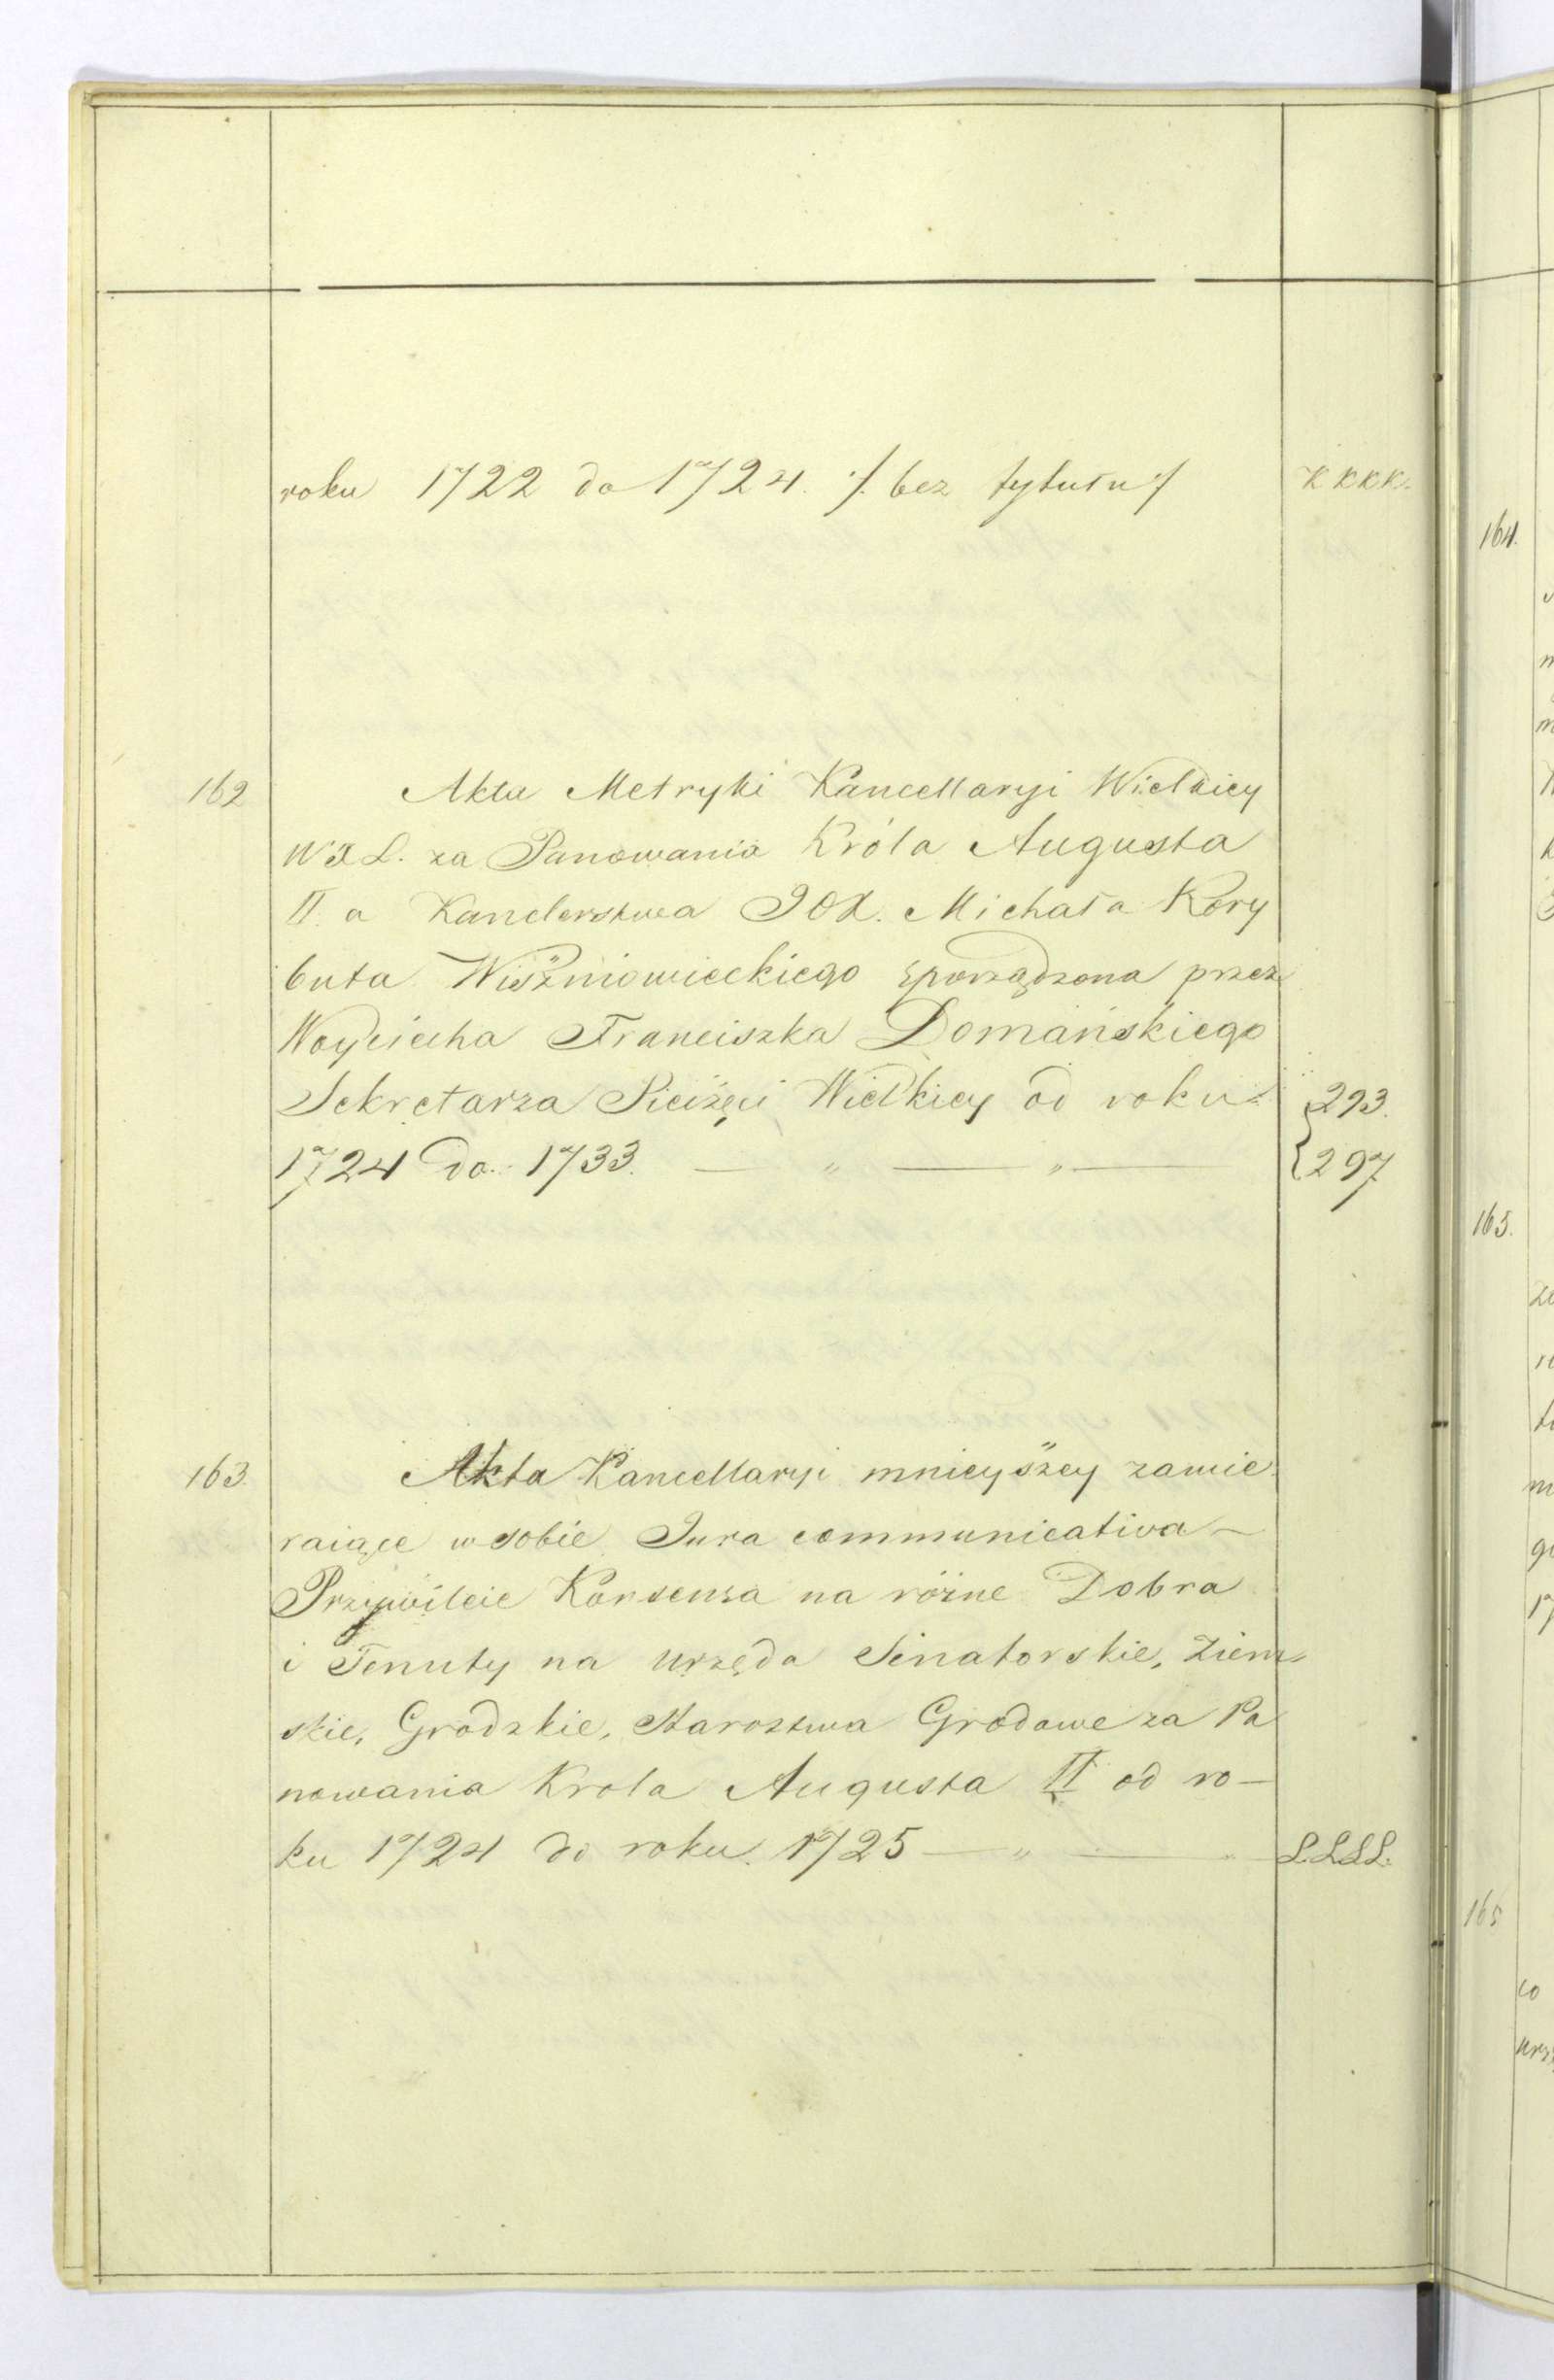 roku 1722 do 1724. /. bez tytułu ./ KKKK.
162 Akta Metryki Kancellaryi Wielkiey
W X L. za Panowania Króla Augusta
II. a Kanclerstwa JOX. Michała Kory
buta Wiśzniowieckiego sporządzona przez
Woyciecha Franciszka Domańskiego
Sekretarza Pieczęci Wielkiey od roku 293.
1724 do 1733. — " — " — 297
163. Akta Kancellaryi mnieyszey zawie
raiące w sobie Jura communicativa —
Przywileie Konsensa na różne Dobra
i Tenuty na urzęda Senatorskie, Ziem
skie, Grodzkie, Starostwa Grodowe za Pa
nowania Krola Augusta II od ro—
ku 1724 do roku. 1725 — " — " L.L.L.L.
164.
165.
165